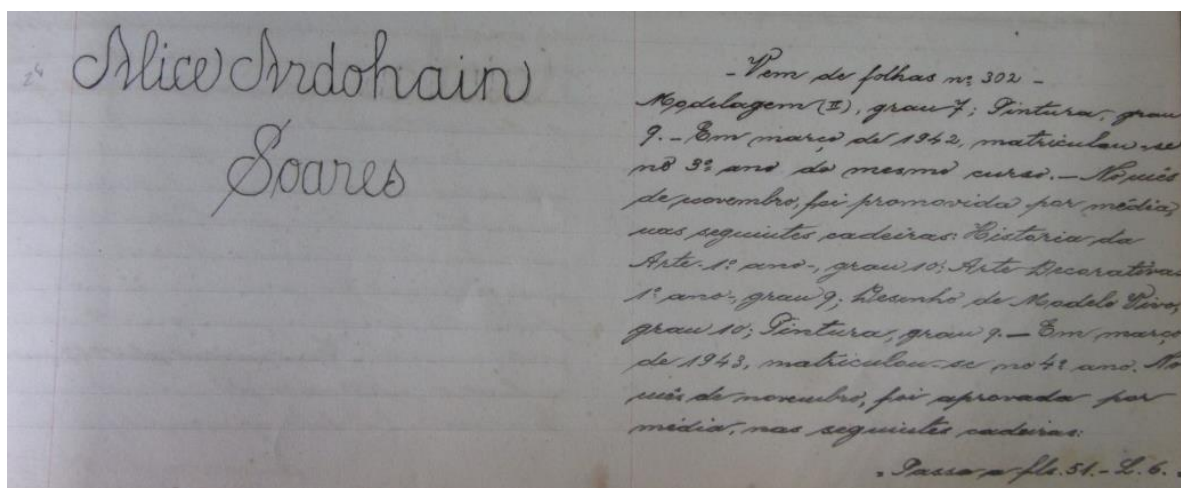 24
Alice Ardohain
Soares
- Vem de folhas nº 302 -
Modelagem (II), grau 7; Pintura, grau
9. - Em março de 1942, matriculou-se
no 3º ano do mesmo curso. - No mês
de novembro, foi promovida por média,
nas seguintes cadeiras: História da
Arte - 1º ano -, grau 10; Arte Decorativa -
1º ano -, grau 9; Desenho de Modelo Vivo,
grau 10; Pintura, grau 9. - Em março
de 1943, matriculou-se no 4º ano. No
mês de novembro, foi aprovada por
média, nas seguintes cadeiras:
- Passa a fls. 51. - L. 6. -